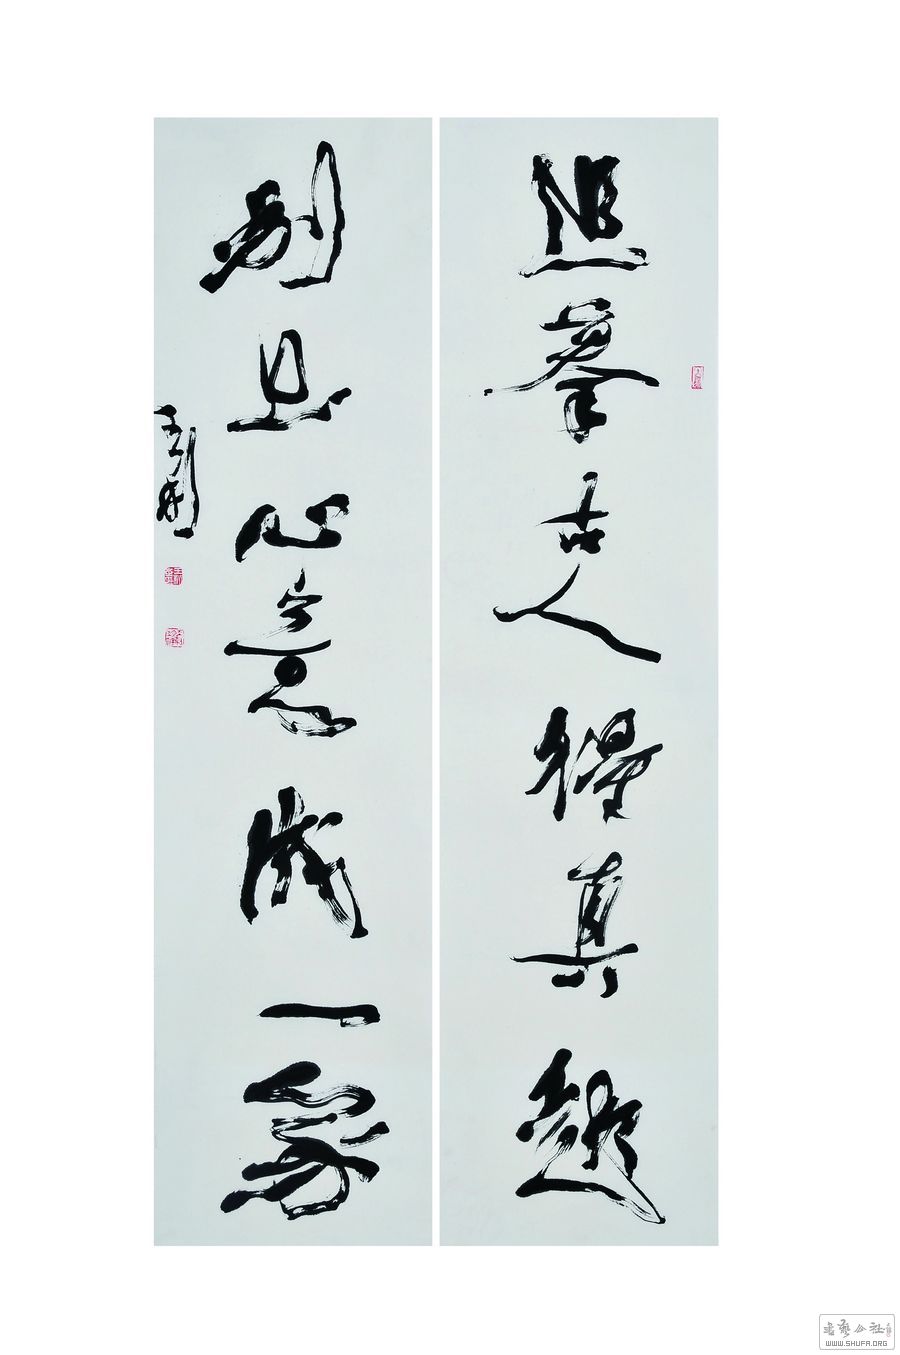 追摹古人得真趣
别出心意成一家
書藝公社
WWW.SHUFA.ORG